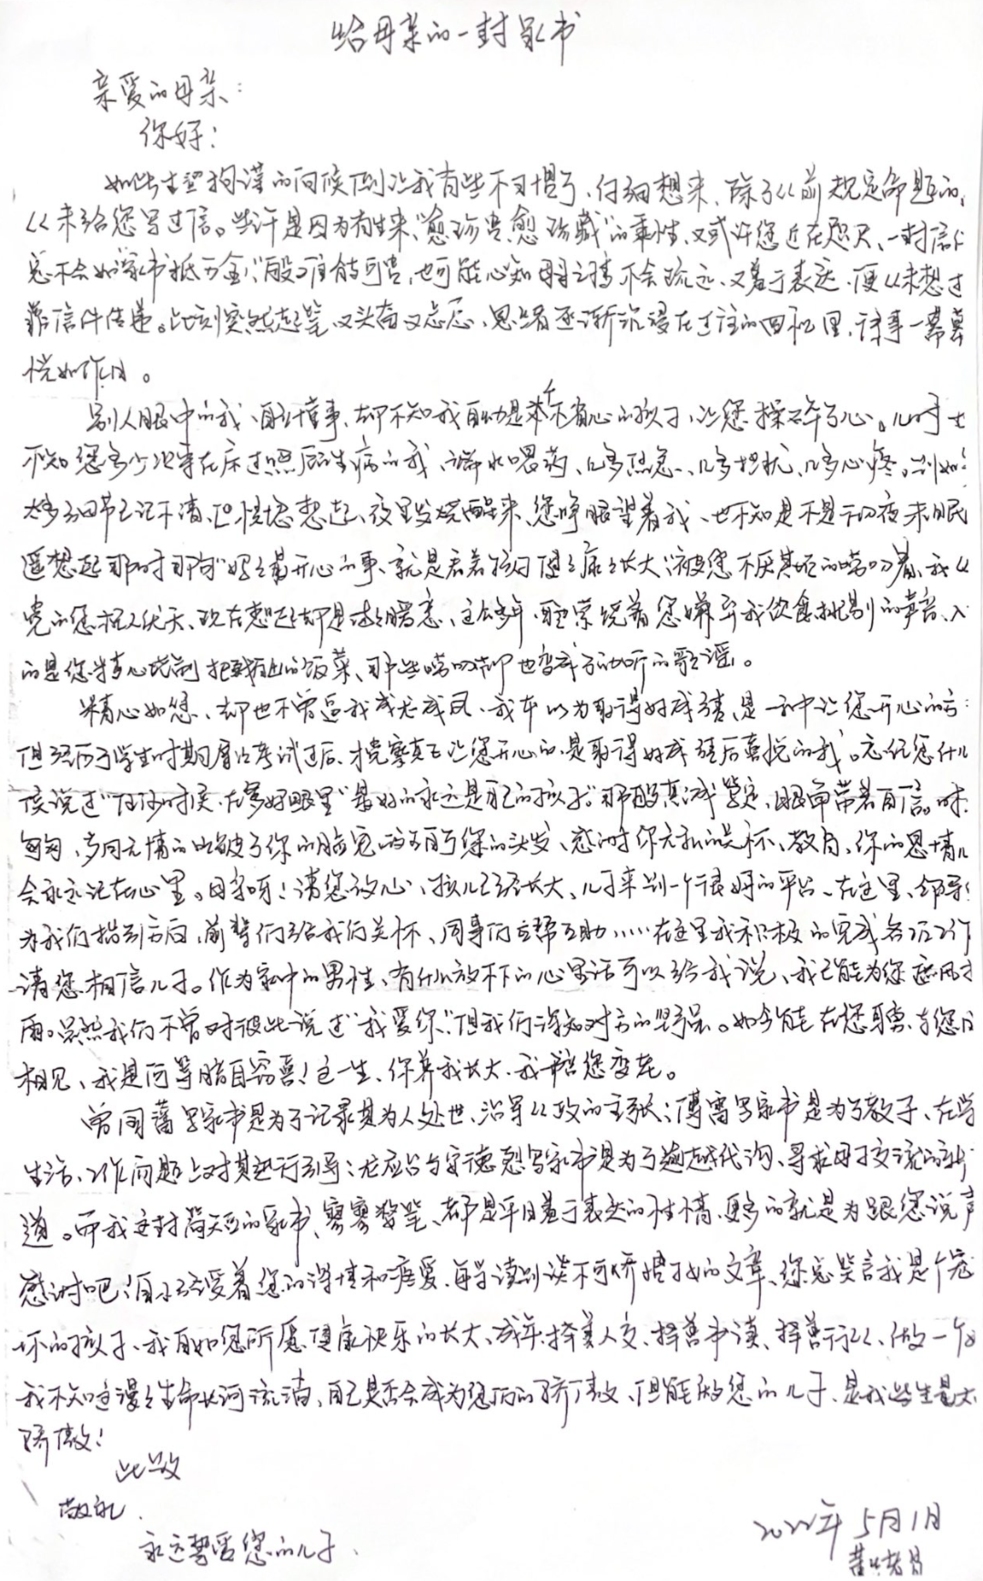 给母亲的一封家书
亲爱的母亲：
你好！
如此生硬拘谨的问候倒让我有些不习惯了，仔细想来，除了从前规定命题的，
从未给您写过信。些许是因为有生来“愈珍贵，愈珍藏”的秉性，又或许您近在咫尺，一封信
总不会如“家书抵万金”般难能可贵，也可能心知母子之情不会疏远，又羞于表达，便从未想过
靠信件传递。此刻突然起笔，又头而又忘，思绪逐渐沉浸在过往的回忆里，诸事一幕幕
恍如昨日。
别人眼中的我，自小懂事，却不知我自幼是个不省心的孩子，让您操碎了心。儿时
不知您多少次守在床边照顾生病的我，端水喂药，几多照急、几多担忧、几多心疼。
太多细节已记不清，但恍惚想起，夜里发烧醒来，您睁眼望着我，也不知是不是一切夜未眠
遥想起那时那句“妈妈最开心的事，就是看着孩子健健康康长大”被您不厌其烦的唠叨着，我
觉的您杞人忧天，现在想起却是暖意，这么多年，耳畔萦绕着您嫌弃我饮食挑剔的声音，入
的是您精心烹制的饭菜，那些唠叨却也变成了动听的歌谣。
精心如您，却也不曾逼我成龙成凤，我本以为取得好成绩，是一种让您开心的方
但经历了学生时期屡次考试过后，才觉察真正让您开心的，是取得好成绩后喜悦的我。忘记您什么
候说过“任何时候，在爹妈眼里”最好的永远是自己的孩子”那般真诚笃定，眼角带着自信。时
匆匆，岁月无情的皱了你的脸庞，白了您的头发，感谢你无私的关怀、教育，你的恩情儿
会永远记在心里。母亲呀！请您放心，孩儿已经长大，儿子来到一个很好的平台，在这里，领导
为我们指引方向，前辈们给我们关怀，同事们互帮互助……在这里我积极的完成各项工作
请您相信儿子。作为家中的男性，有什么放不下的心里话可以给我说，我已能为您遮风挡
雨。虽然我们不曾对彼此说过“我爱你”，但我们深知对方的坚强。如今能在您身旁，与您日
相见，我是何等暗自窃喜！这一生，你养我长大，我陪您变老。
曾国藩写家书是为了记录其为人处世、治军从政的主张；傅雷写家书是为了教子，在学
生活、工作问题上对其进行引导；龙应台与安德烈写家书是为了逾越代沟、寻求母子交流的新
道。而我这封简短的家书，寥寥数笔，都是平日羞于表达的性情，更多的就是为跟您说声
感谢吧！自小经受着您的深情和疼爱，每每读到谈不可娇惯孩子的文章，您总笑言我是个宠
坏的孩子，我自如您所愿健康快乐的长大，成年，择善人交，择善书读，择善行从，做一个
我不知这漫漫生命长河流淌，自己是否会成为您们的骄傲，但能做您的儿子，是我此生最大
骄傲！
此致
敬礼
永远挚爱您的儿子
2022年5月1日